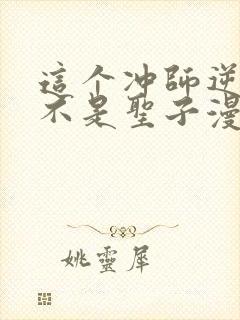 這个冲師逆
不是聖子漫
姚靈犀